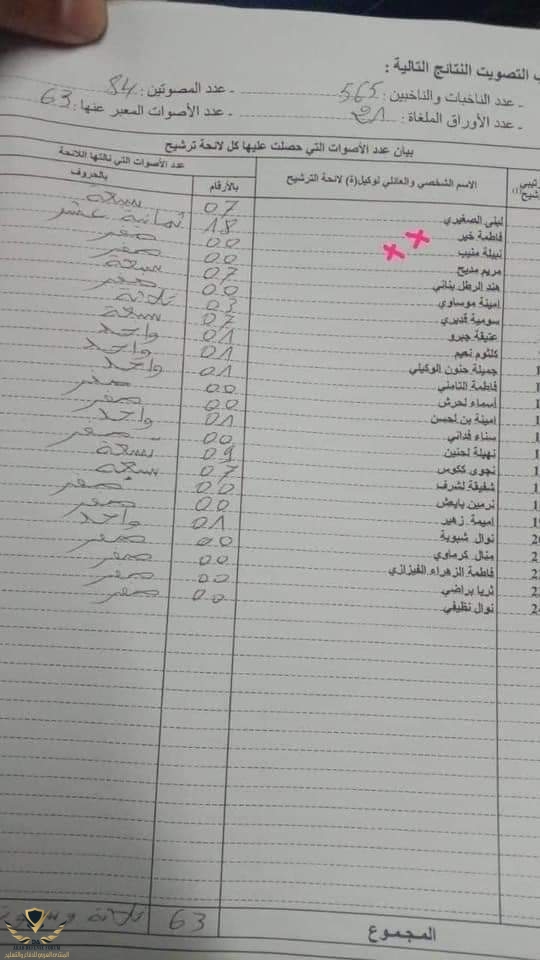 ب التصويت النتائج التالية :
- عدد الناخبات والناخبين : 565 - عدد المصوتين : 84
- عدد الأوراق الملغاة : 21 - عدد الأصوات المعبر عنها : 63
بيان عدد الأصوات التي حصلت عليها كل لائحة ترشيح
الاسم الشخصي والعائلي لوكيل(ة) لائحة الترشيح
عدد الأصوات التي نالتها اللائحة
بالأرقام بالحروف
ليلى الصغيري 07 سبعة
فاطمة خير 18 ثمانية عشر
نبيلة منيب 00 صفر
مريم مديح 00 صفر
هند الرطل بناني 07 سبعة
امينة موساوي 00 صفر
سومية قديري 03 ثلاثة
عتيقة جبرو 07 سبعة
كلثوم نعيم 01 واحد
جميلة حنون الوكيلي 01 واحد
فاطمة التامني 01 واحد
أسماء لحرش 00 صفر
امينة بن لحسن 00 صفر
سناء فداني 01 واحد
نهيلة لحنين 00 صفر
نجوى ككوس 09 تسعة
شفيقة لشرف 07 سبعة
نرمين يايعش 00 صفر
اميمة زهير 00 صفر
نوال شبوية 01 واحد
منال كرماوي 00 صفر
فاطمة الزهراء الفيزازي 00 صفر
ثريا براضي 00 صفر
نوال نظيفي 00 صفر
المجموع 63 ثلاثة وستون